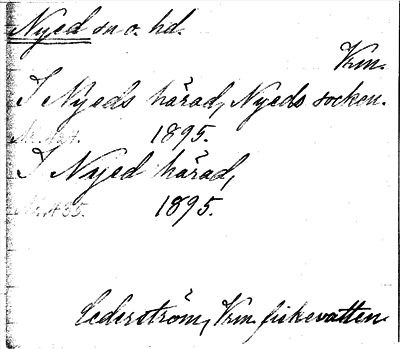 Nyed sn o. hd.
Vrm.
I Nyeds härad, Nyeds socken.
1895.
I Nyed härad,
Nr. 435. 1895.
Cederström, Vrm. fiskevatten